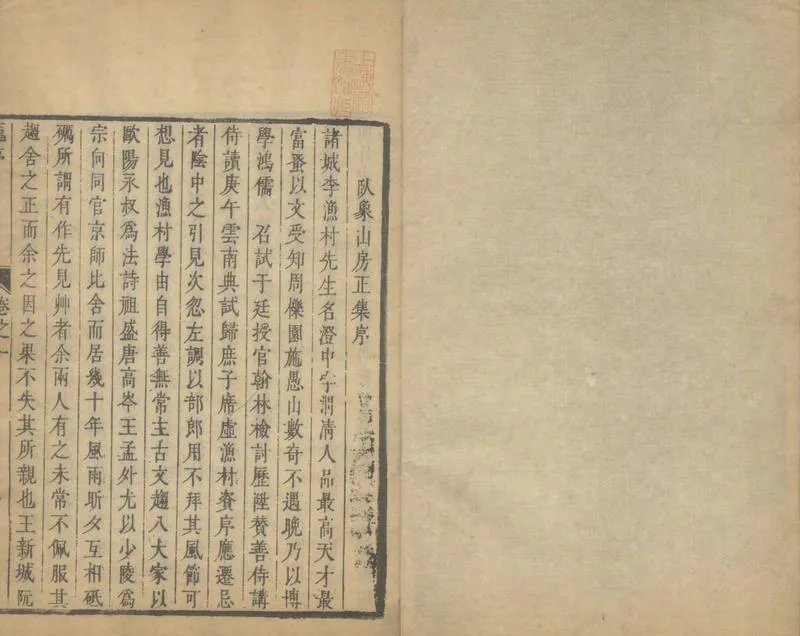 臥象山房正集序
諸城李漁村先生名澄中字渭清人品最高天才最
富蚤以文受知周櫟園施愚山數奇不遇晚乃以博
學鴻儒 召試于廷授官翰林檢討歷陞贊善侍講
侍讀庚午雲南典試歸庶子席虛漁村資序應遷忌
者陰中之引見次忽左調以部郎用不拜其風節可
想見也漁村學由自得善無常主古文趨八大家以
歐陽永叔為法詩祖盛唐高岑王孟外尤以少陵為
宗向同官京師比舍而居幾十年風雨昕夕互相砥
礪所謂有作先見艸者余兩人有之未常不佩服其
趨舍之正而余之因之果不失其所親也王新城阮
卷之一